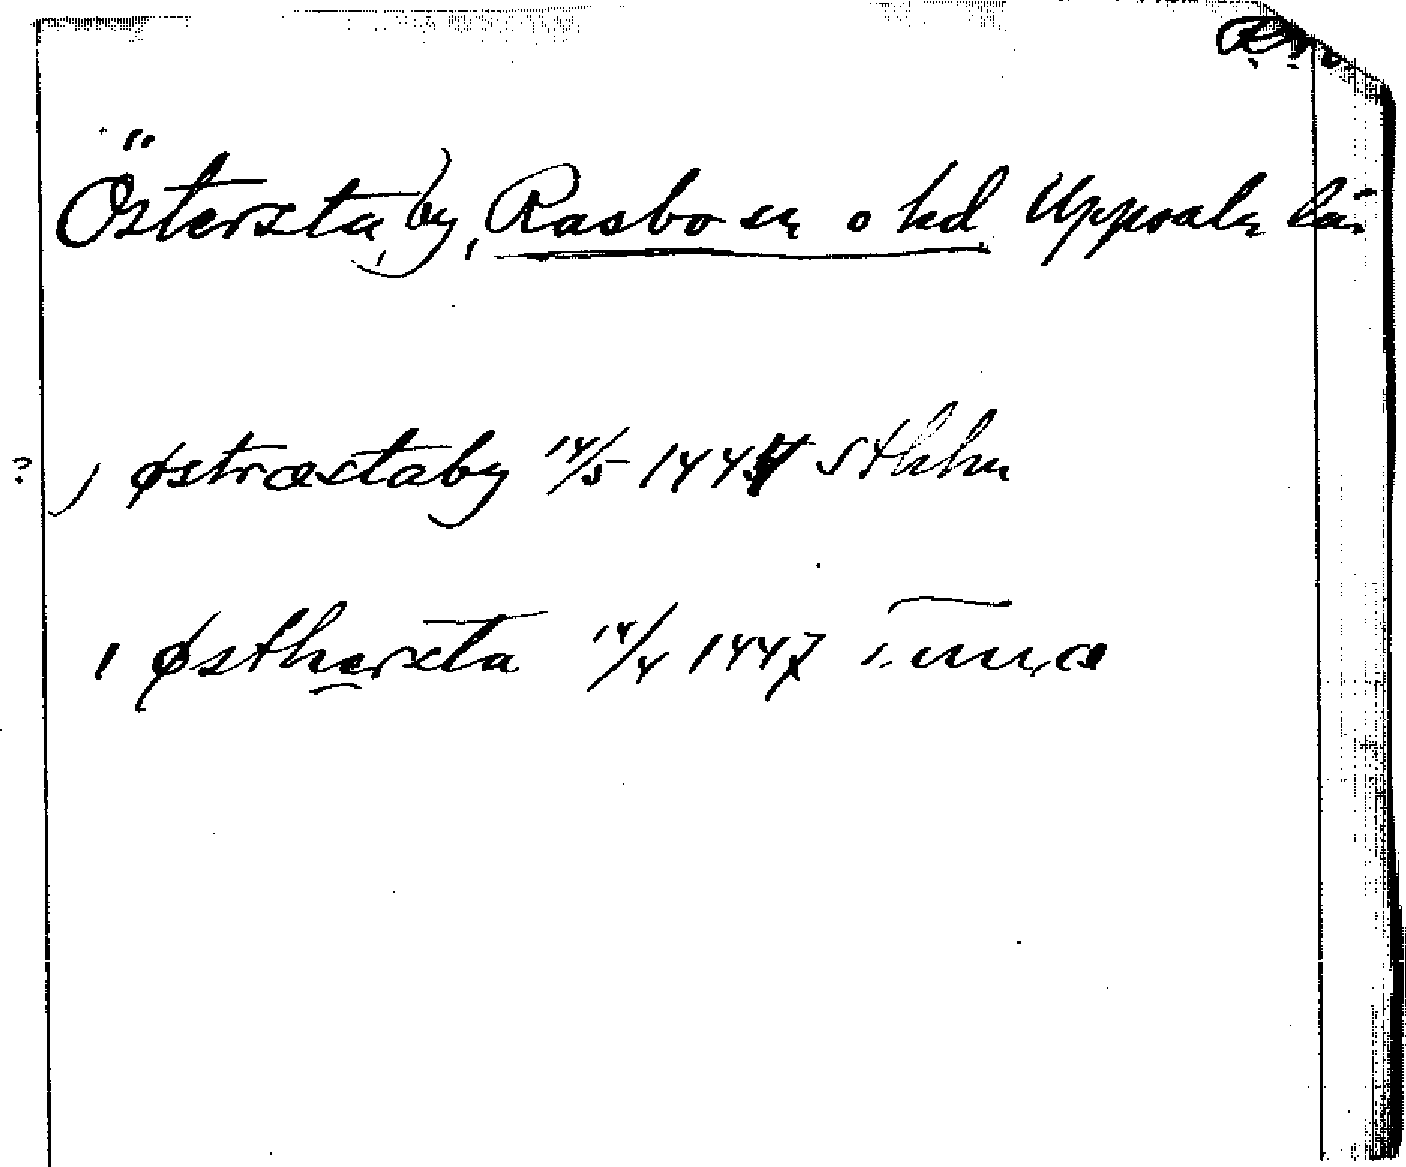 Östersta, by, Rasbo sn o hd Uppsala län
? ) østræstaby 14/5 1444 Sthlm
1 østhersta 14/4 1447